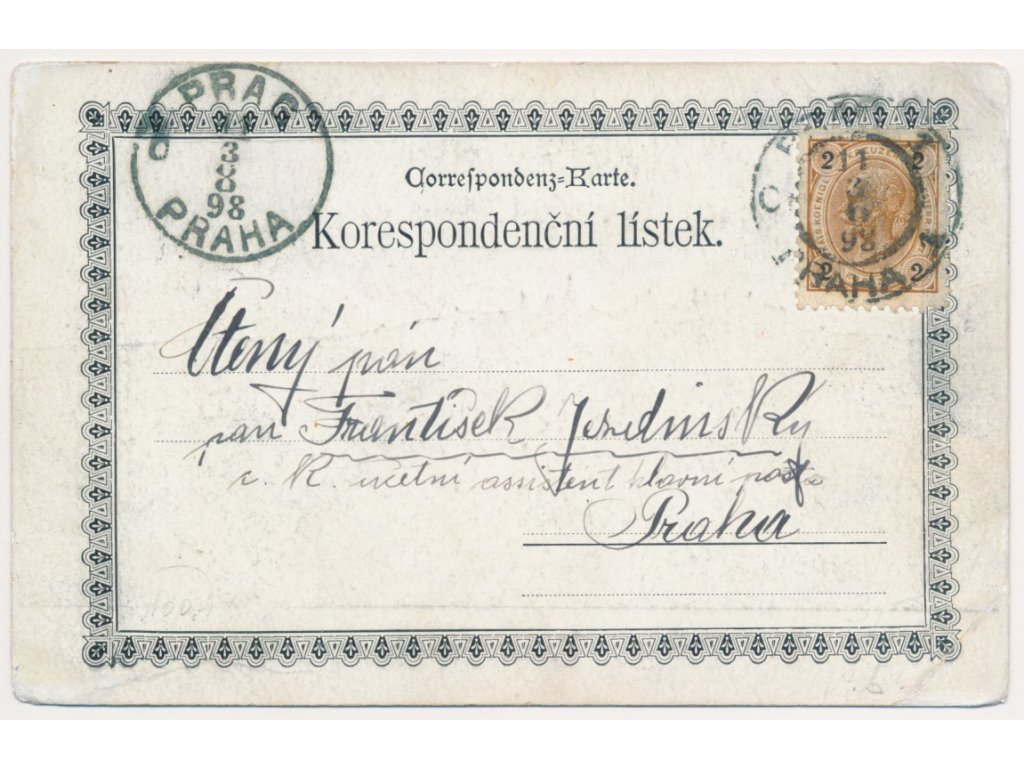 PRAG
11
3
8
98
PRAHA
Correſpondenz-Karte.
Korespondenční lístek.
2 2
11
98
PRAHA 1
2 2
Ctený pán
pan František Jezdinský
c. k. účetní assistent hlavní pošta
Praha
100,-